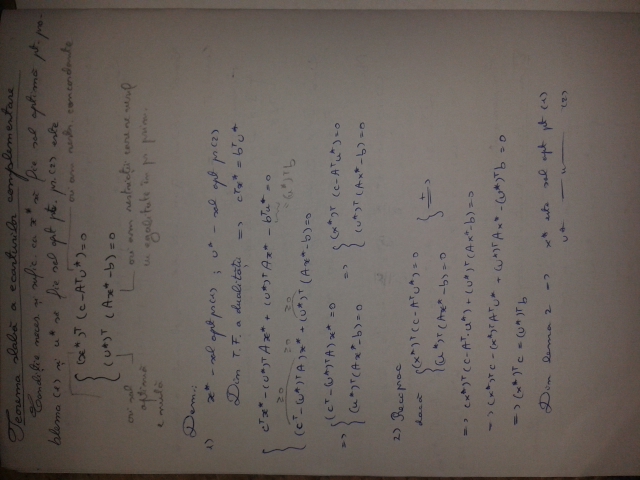 Teorema slabă a ecarturilor complementare
Condiție neces și sufic. ca x* să fie sol optimă pt. pro-
blema (1) și u* să fie sol opt pt. pr.(2) este
ori am restr. concordante
{ (x*)ᵀ (c-Aᵀu*)=0
(u*)ᵀ (Ax*-b)=0
ori sol
optimă
e nulă
ori am restricții care se rezolvă
cu egalitate în pr prim.
Dem.:
1) x* - sol opt pr(1) ; u* - sol opt pr(2)
Din T.F. a dualității => cᵀx* = bᵀu*
{ cᵀx* - (u*)ᵀAx* + (u*)ᵀAx* - bᵀu* = 0
≥0 ≥0 ≥0 = (u*)ᵀb
(cᵀ-(u*)ᵀA)x* + (u*)ᵀ(Ax*-b)=0
=> { (cᵀ-(u*)ᵀA)x* = 0 => { (x*)ᵀ (c-Aᵀu*)=0
(u*)ᵀ(Ax*-b)=0 (u*)ᵀ (Ax*-b)=0
2) Reciproc
dacă { (x*)ᵀ(c-Aᵀu*)=0 } + =>
(u*)ᵀ(Ax*-b)=0
=> (x*)ᵀ(c-Aᵀ·u*)+(u*)ᵀ(Ax*-b)=0
=> (x*)ᵀc-(x*)ᵀAᵀu* + (u*)ᵀAx*-(u*)ᵀb = 0
=> (x*)ᵀc = (u*)ᵀb
Din lema 2 => x* este sol opt pt (1)
u* — u — (2)